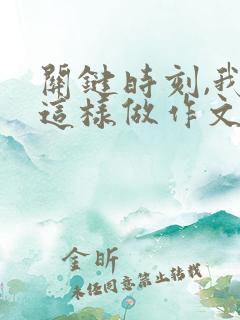 關鍵時刻,我
這樣做作文
金昕
未经同意禁止转载